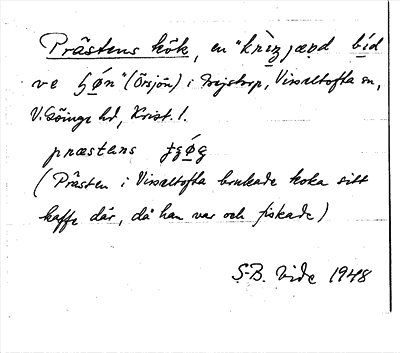 Prästens kök, en "krìzjæņd bíd
ve ʂǿn" (Örsjön) i Weistorp, Visseltofta sn,
V. Göinge hd, Krist. l.
præstens ɟʒǿg
(Prästen i Visseltofta brukade koka sitt
kaffe där, då han var och fiskade)
S-B. Vide 1948